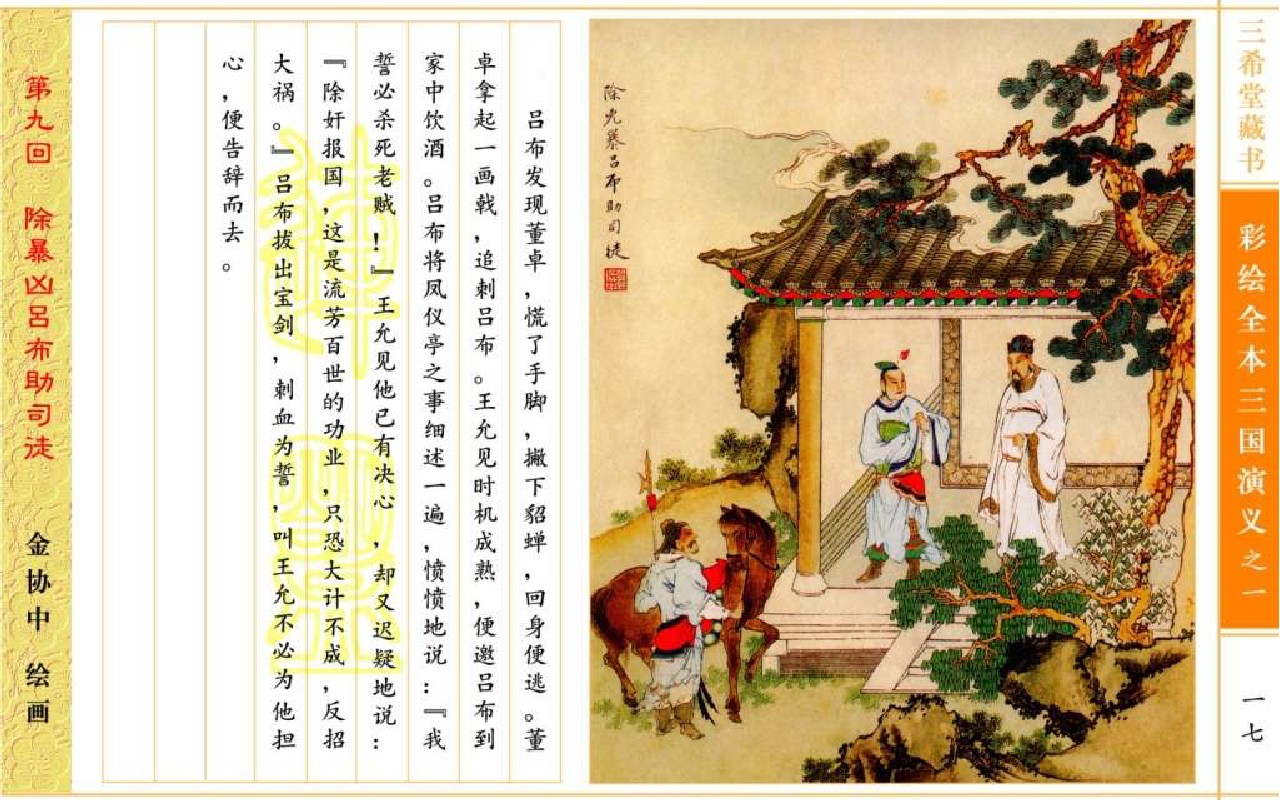 三希堂藏书
彩绘全本三国演义之一
一七
除凶暴吕布助司徒
吕布发现董卓，慌了手脚，撇下貂蝉，回身便逃。董
卓拿起一画戟，追刺吕布。王允见时机成熟，便邀吕布到
家中饮酒。吕布将凤仪亭之事细述一遍，愤愤地说：『我
誓必杀死老贼！』王允见他已有决心，却又迟疑地说：
『除奸报国，这是流芳百世的功业，只恐大计不成，反招
大祸。』吕布拔出宝剑，刺血为誓，叫王允不必为他担
心，便告辞而去。
第九回 除暴凶吕布助司徒
金协中 绘画